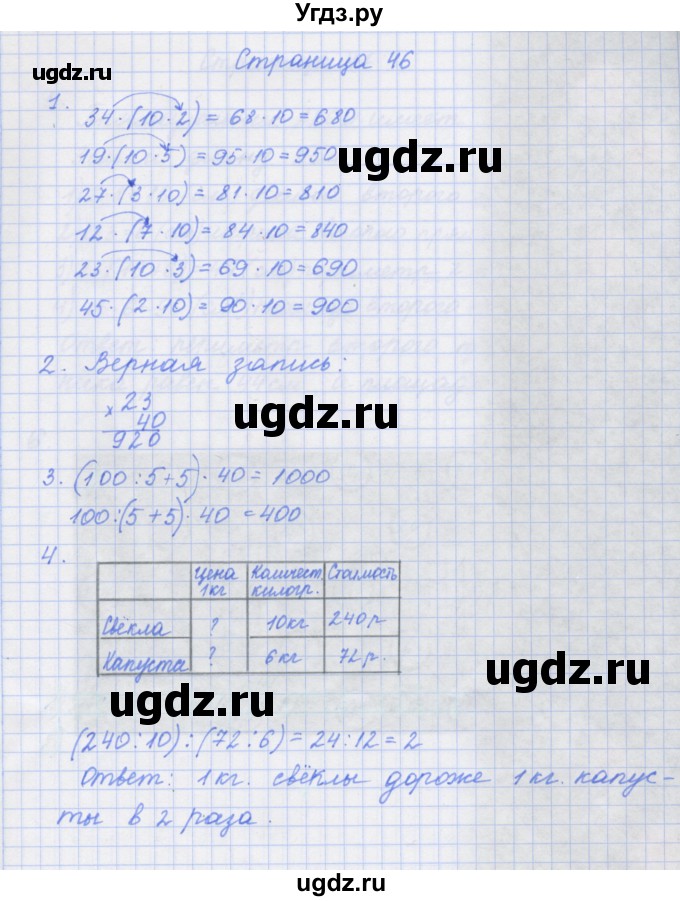 Угдз.ру
Страница 46
ugdz.ru
1.
34·(10·2)=68·10=680
19·(10·5)=95·10=950
ugdz.ru
27·(3·10)=81·10=810
12·(7·10)=84·10=840
23·(10·3)=69·10=690
45·(2·10)=90·10=900
2. Верная запись:
×23
40
920
ugdz.ru
3. (100:5+5)·40=1000
100:(5+5)·40=400
4.
Цена 1кг Количест. килогр. Стоимость
Свёкла ? 10кг 240р
Капуста ? 6кг 72р.
ugdz.ru
(240:10):(72:6)=24:12=2
Ответ: 1кг. свёклы дороже 1кг. капус-
ты в 2 раза.
ugdz.ru
ugdz.ru
ugdz.ru